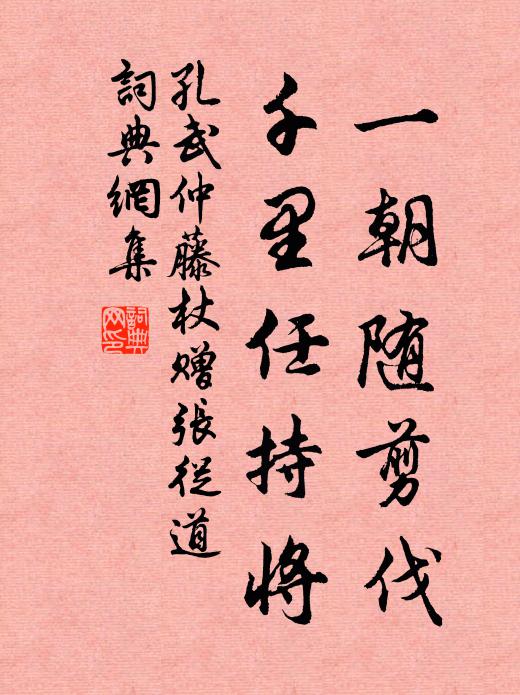 一朝随剪伐
千里任持將
孔武仲藤杖赠張從道
詞典網集
詞典
网印